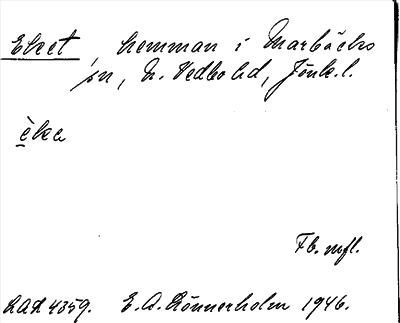 Eket, hemman i Marbäcks
sn, N. Vedbo hd, Jönk. l.
èka
Fb. mfl.
LAL 4359. E. A. Rönnerholm 1946.